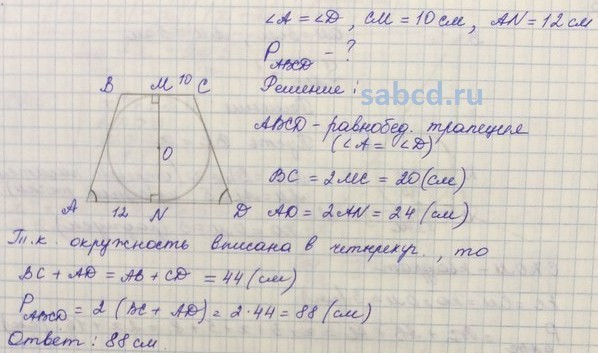 ∠A = ∠D, CM = 10 см, AN = 12 см
P_ABCD - ?
Решение:
sabcd.ru
ABCD - равнобед. трапеция
(∠A = ∠D)
BC = 2MC = 20 (см)
AD = 2AN = 24 (см)
B M 10 C
O
A 12 N D
Т.к. окружность вписана в четырехуг., то
BC + AD = AB + CD = 44 (см)
P_ABCD = 2 (BC + AD) = 2·44 = 88 (см)
Ответ: 88 см.